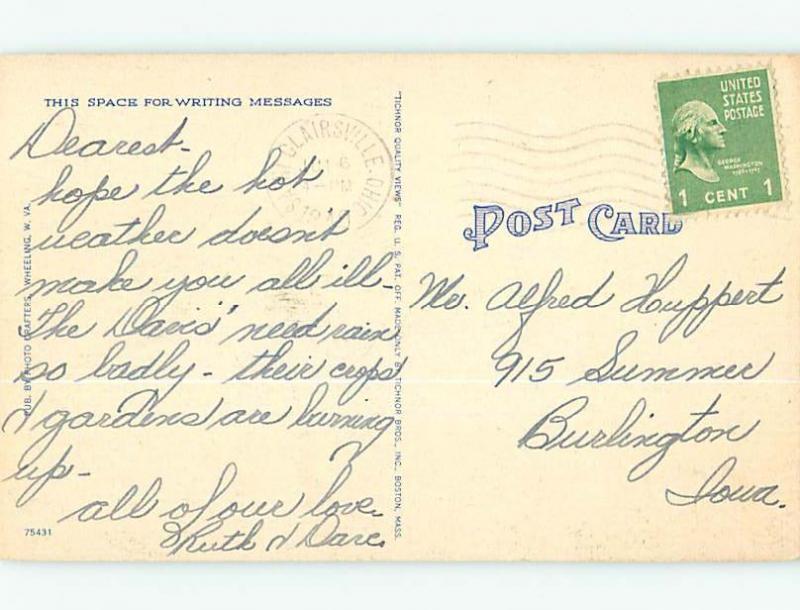 THIS SPACE FOR WRITING MESSAGES
Dearest-
hope the hot
weather doesn't
make you all ill-
The Davis' need rain
so badly - their crops
& gardens are burning
up-
all of our love.
Ruth & Dare.
75431
PUB. BY PHOTO CRAFTERS, WHEELING, W. VA.
"TICHNOR QUALITY VIEWS" REG. U. S. PAT. OFF. MADE ONLY BY TICHNOR BROS., INC., BOSTON, MASS.
CLAIRSVILLE. OHIO
PM
UNITED
STATES
POSTAGE
GEORGE
WASHINGTON
1 CENT 1
POST CARD
Mr. Alfred Huppert
915 Summer
Burlington
Iowa.